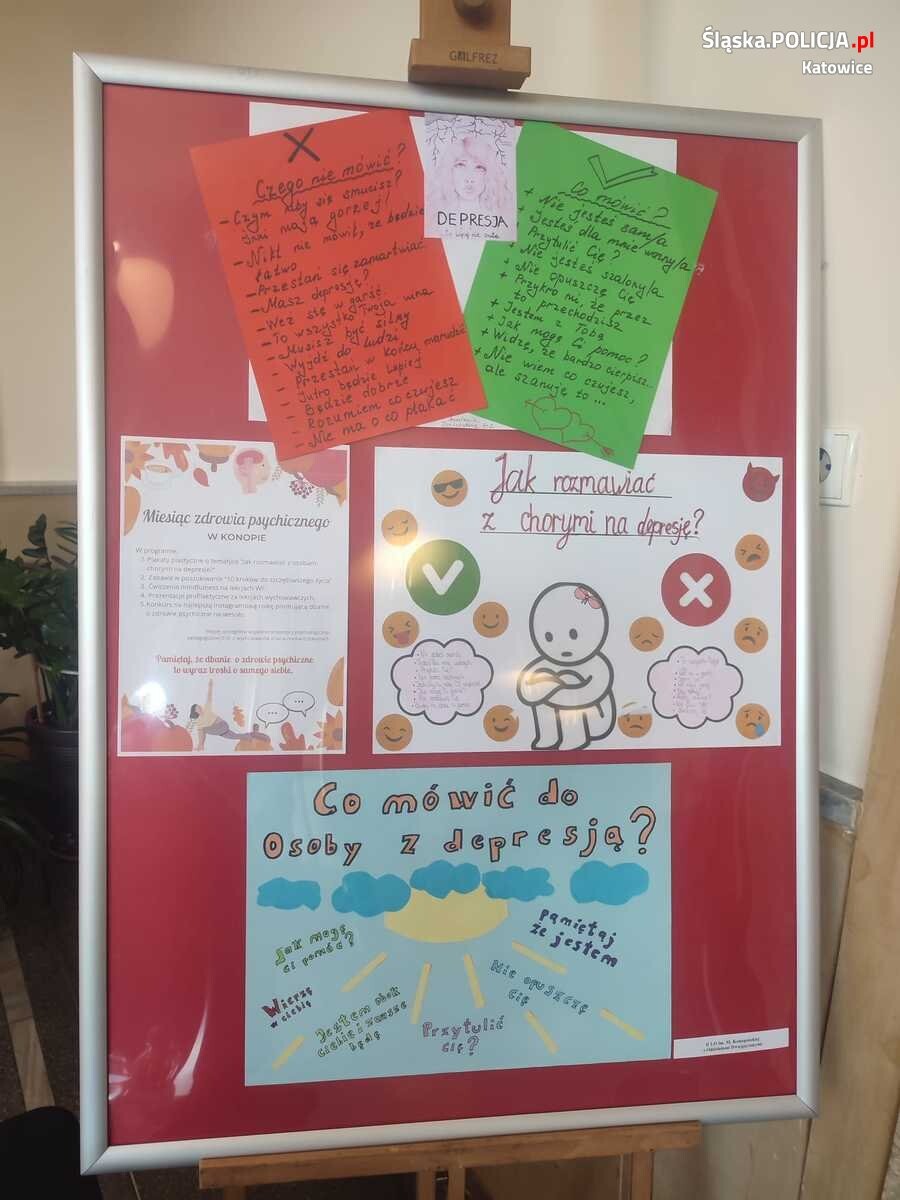 Śląska.POLICJA.pl
Katowice
GOLFREZ
Czego nie mówić?
- Czym niby się smucisz?
Inni mają gorzej!
- Nikt nie mówił, że będzie
łatwo
- Przestań się zamartwiać
- Masz depresję?
- Weź się w garść.
- To wszystko Twoja wina
- Musisz być silny
- Wyjdź do ludzi,
- Przestań w końcu marudzić
- Jutro będzie lepiej
- Będzie dobrze
- Rozumiem co czujesz
- Nie ma o co płakać
DEPRESJA
Co mówić?
+ Nie jesteś sam/a
+ Jesteś dla mnie ważny/a
Przytulić Cię?
+ Nie jesteś szalony/a
+ Nie opuszczę Cię
+ Przykro mi, że przez
to przechodzisz
+ Jestem z Tobą
+ Jak mogę Ci pomóc?
+ Widzę, że bardzo cierpisz...
+ Nie wiem co czujesz,
ale szanuję to...
Miesiąc zdrowia psychicznego
W KONOPIE
W programie:
1. Plakaty plastyczne o tematyce "Jak rozmawiać z osobami
chorymi na depresję?"
2. Zabawa w poszukiwanie "10 kroków do szczęśliwszego życia"
3. Ćwiczenia mindfulness na lekcjach WF.
4. Prezentacje profilaktyczne na lekcjach wychowawczych.
5. Konkurs na najlepszą instagramową rolkę promującą dbanie
o zdrowie psychiczne na wesoło.
Pamiętaj, że dbanie o zdrowie psychiczne
to wyraz troski o samego siebie.
Jak rozmawiać
z chorymi na depresję?
Co mówić do
Osoby z depresją?
Jak mogę
ci pomóc?
pamiętaj
że jestem
Wierzę
w ciebie
Jestem obok
ciebie i zawsze
będę
Przytulić
cię?
Nie opuszczę
cię
II LO im. M. Konopnickiej
z Oddziałami Dwujęzycznymi